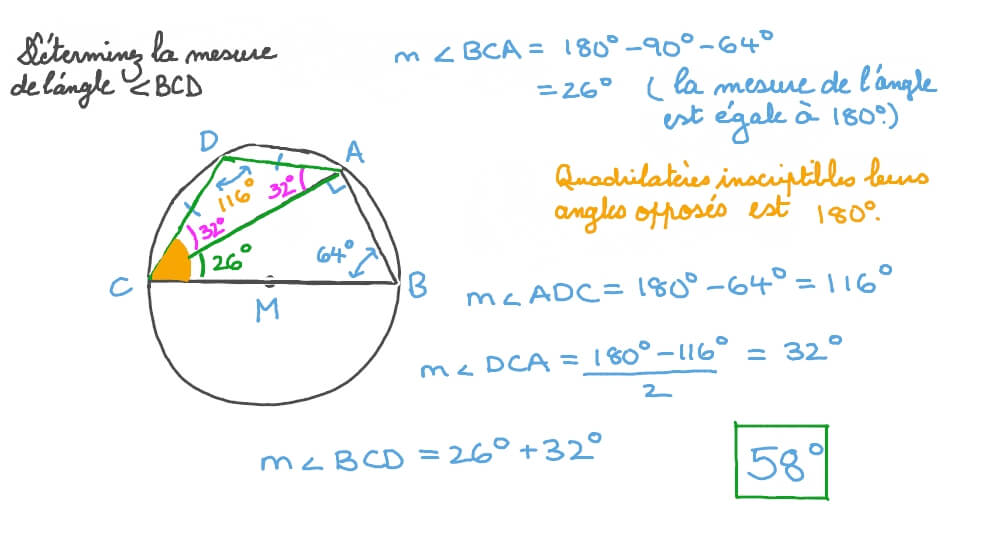 Déterminez la mesure
de l'angle ∠BCD
m∠BCA = 180° - 90° - 64°
= 26° (la mesure de l'angle
est égale à 180°.)
Quadrilatères inscriptibles leurs
angles opposés est 180°.
D
A
116°
32°
32°
26°
64°
C
M
B
m∠ADC = 180° - 64° = 116°
m∠DCA = 180° - 116° / 2 = 32°
m∠BCD = 26° + 32°
58°